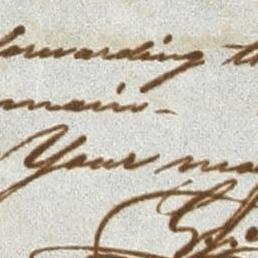 forwarding th
main
Your mo